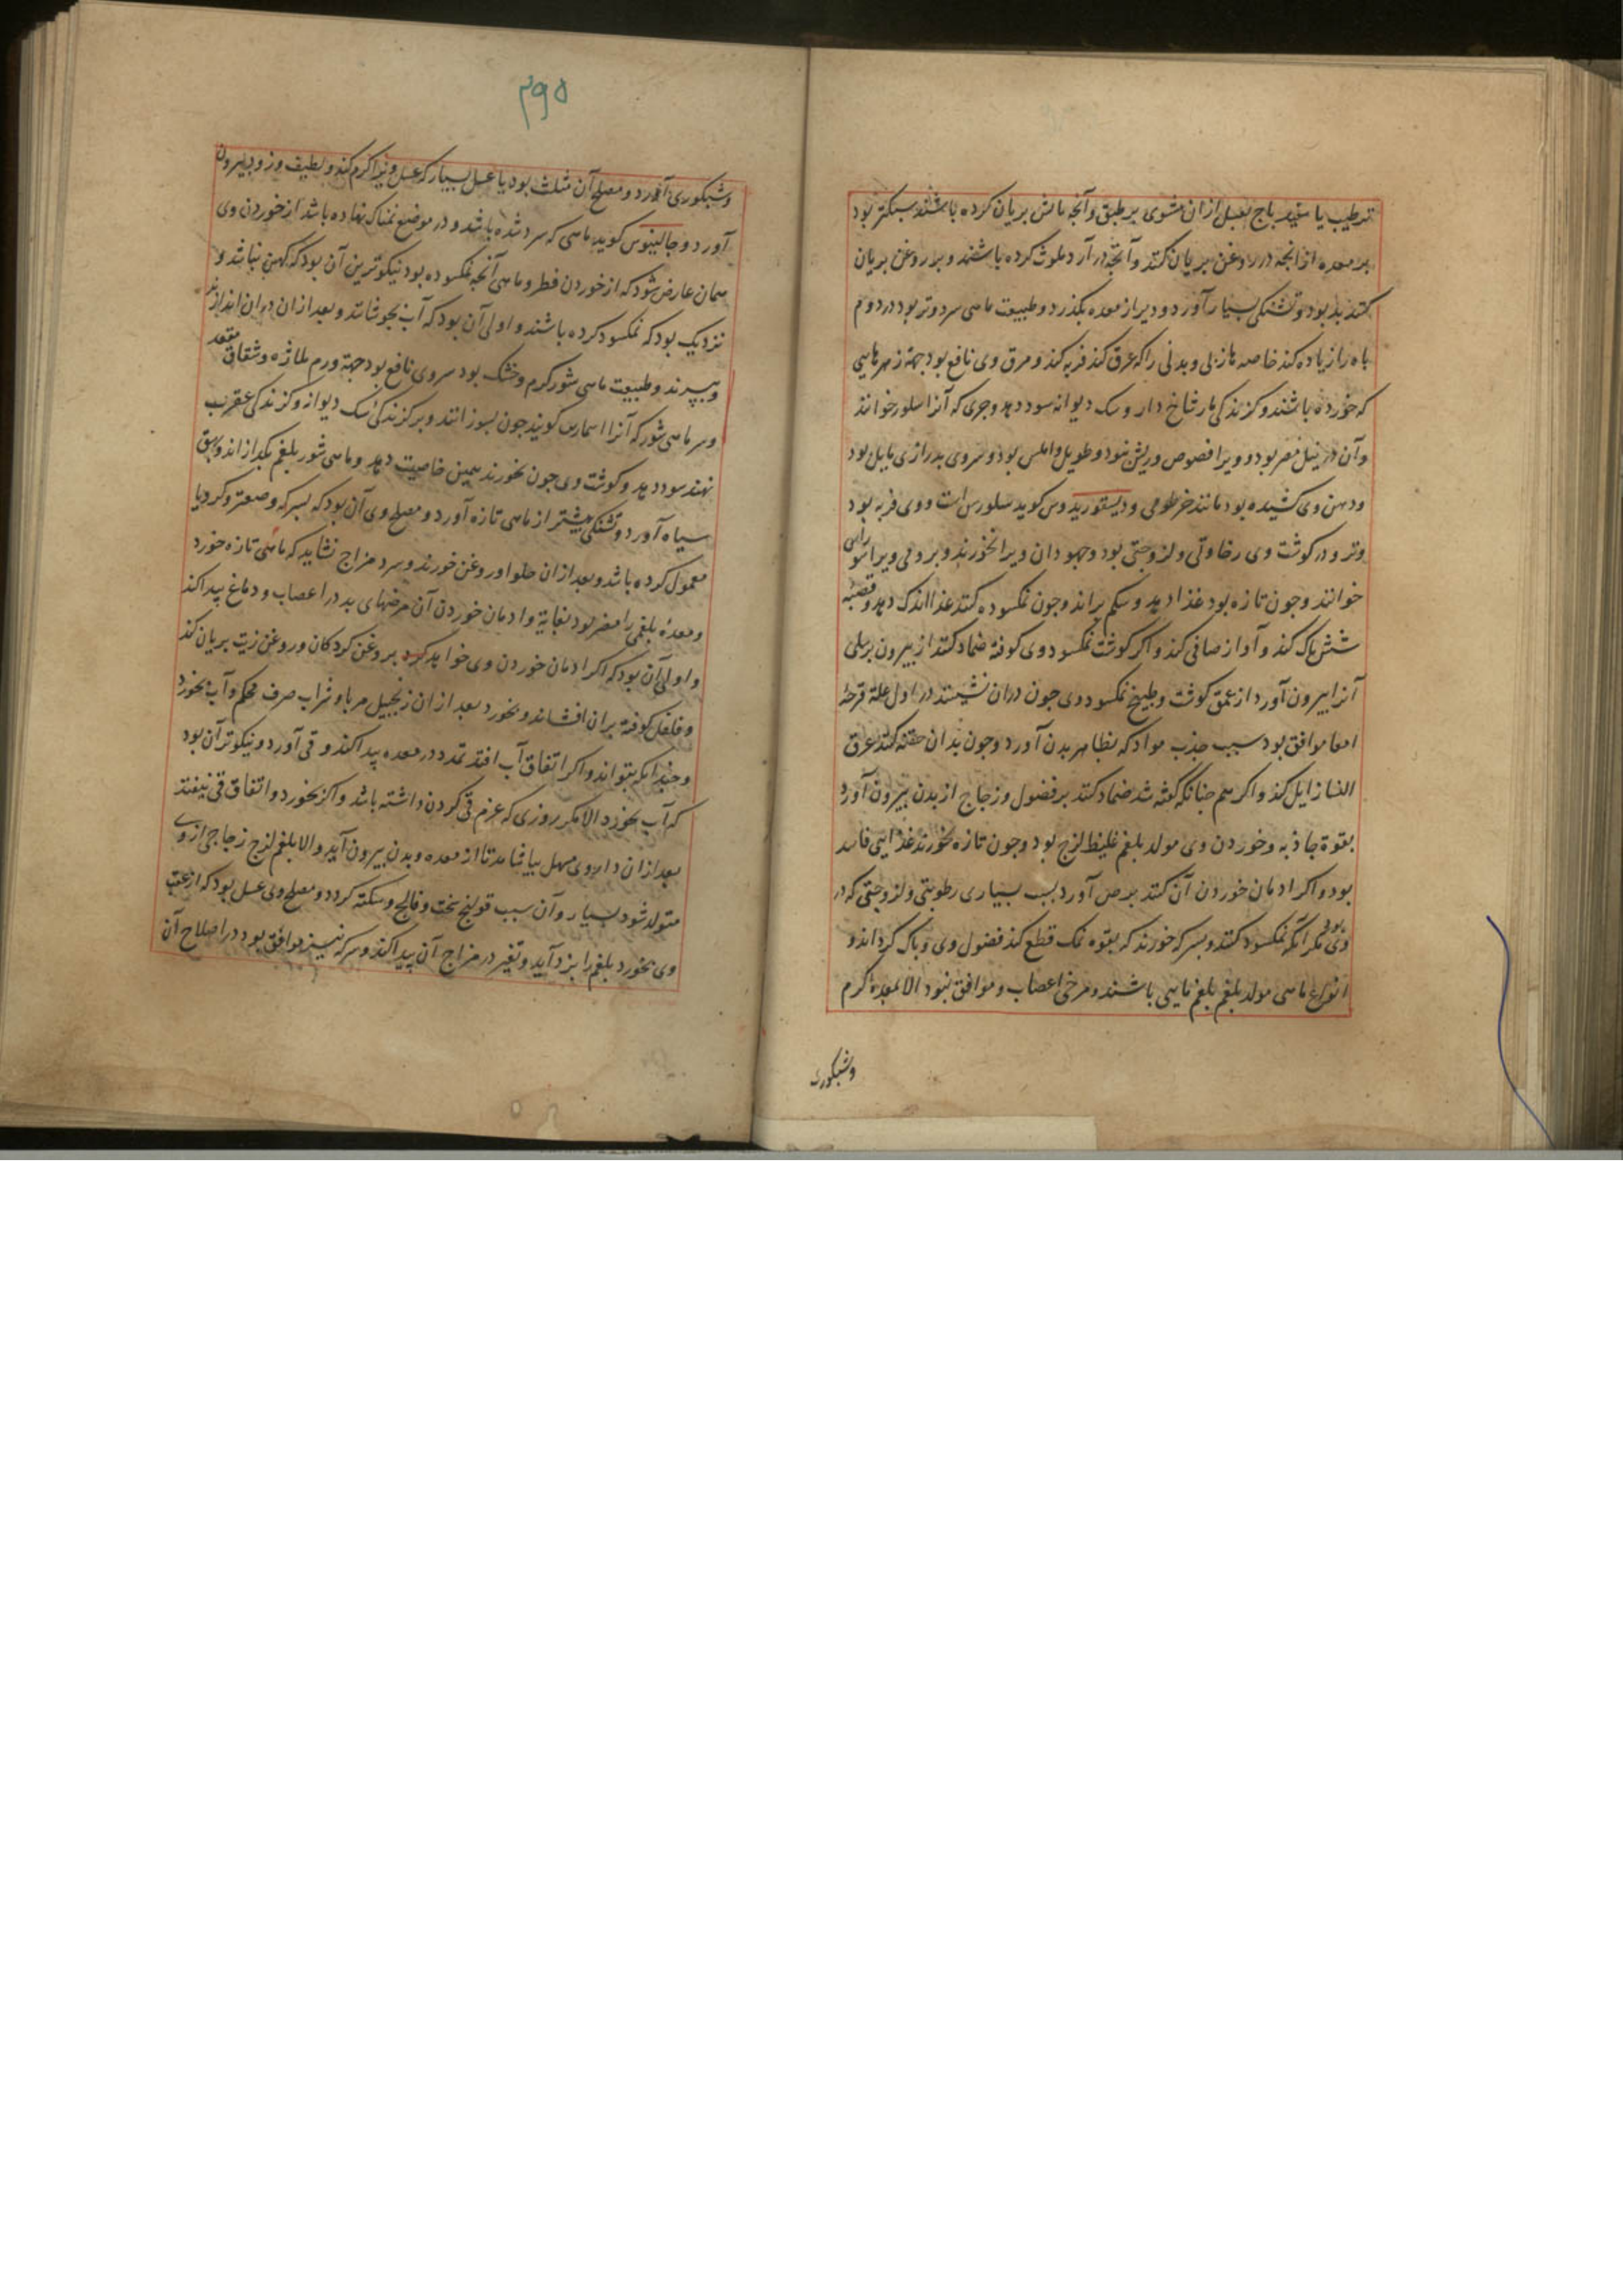 ترطیب یا سفید باج بعسل ازان مشوی بر طبق وآنچه ماش بریان کرده باشند سبکتر بود
بر معده ازانجه در روغن بریان کنند وآنجه در آرد ملوث کرده باشند وبروغن بریان
کنند بد بود وتشنکی بسیار آورد ودیر از معده بکذرد وطبیعت ماهی سرد وتر بود در دوم
باه را زیاده کند خاصه مازلی وبدنی را که عرق کند فربه کند ومرق وی نافع بود جهة زهرهایی
که خورده باشند وکزندکی مار شاخ دار وسک دیوانه سود دهد وجری که آنرا سلور خوانند
وآن در نیل مصر بود وویرا فصوص وریش نبود وطویل واملس بود وسروی بدرازی مایل بود
ودهن وی کشیده بود مانند خرطومی ودیسقوریدوس کوید سلورس است ووی فربه بود
وتر ودر کوشت وی رخاوتی ولزوجتی بود وجهودان ویرا نخورند وبرومی ویرا
خوانند وجون تازه بود غذا دهد وشکم براند وجون نمکسوده کنند غذا اندک دهد وقصبهٔ
شش پاک کند وآواز صافی کند واکر کوشت نمکسود وی کوفته ضماد کنند از بیرون بر سلی
آنرا بیرون آورد از عمق کوشت وطبیخ نمکسود وی جون دران نشینند در اول علة قرحهٔ
امعا موافق بود سبب جذب مواد که بظاهر بدن آورد وجون بدان حقنه کنند عرق
النسا زایل کند واکر هم جنانکه کفته شد ضماد کنند بر فضول وزجاج از بدن بیرون آورد
بقوة جاذبه وخوردن وی مولد بلغم غلیظ لزج بود وجون تازه خورند غذایی فاسد
بود واکر ادمان خوردن آن کنند برص آورد بسبب بسیاری رطوبتی ولزوجتی که در
وی بود مکر آنکه نمکسود کنند وبسرکه خورند که بقوه نمک قطع کند فضول وی وپاک کرداند و
انواع ماهی مولد بلغم بلغم مایی باشند ومرخی اعصاب وموافق نبود الا معده کرم
وشبکوری
۲۹۵
وشبکوری آورد ومصلح آن مثلث بود یا عسل بسیار که عسل ویرا کرم کند ولطیف وزود بیرون
آورد وجالینوس کوید ماهی که سرد شده باشد ودر موضع نمناک نهاده باشد از خوردن وی
همان عارض شود که از خوردن فطر وماهی آنجه نمکسوده بود نیکوترین آن بود که کهن نباشد و
نزدیک بود که نمکسود کرده باشند واولی آن بود که آب بجوشانند وبعد ازان دران اندازند
وبپزند وطبیعت ماهی شور کرم وخشک بود سر وی نافع بود جهة ورم ملازه وشقاق مقعد
وسر ماهی شور که آنرا اسمارس کویند جون بسوزانند وبر کزندکی سک دیوانه وکزندکی عقرب
نهند سود دهد وکوشت وی جون بخورند همین خاصیت دهد وماهی شور بلغم بکدازاند وبهق
سیاه آورد وتشنکی بیشتر از ماهی تازه آورد ومصلح وی آن بود که بسرکه وصعتر وکرویا
معمول کرده باشد وبعد ازان حلوا وروغن خورند وسرد مزاج نشاید که ماهی تازه خورد
ومعدهٔ بلغمی را مضر بود بغایة وادمان خوردن آن مرضهای بد در اعصاب ودماغ پیدا کند
واولی آن بود که اکر ادمان خوردن وی خواهد کرد بروغن کردکان وروغن زیت بریان کند
وفلفل کوفته بران افشاند وبخورد بعد ازان زنجبیل مربا وشراب صرف محکم وآب نخورد
وجندانکه بتواند واکر اتفاق آب افتد تمدد در معده پیدا کند وقی آورد ونیکوتر آن بود
که آب نخورد الا مکر روزی که عزم قی کردن داشته باشد واکر بخورد واتفاق قی نیفتد
بعد ازان داروی مسهل بیاشامد تا از معده وبدن بیرون آید والا بلغم لزج زجاجی از وی
متولد شود بسیار وآن سبب قولنج سخت وفالج وسکته کردد ومصلح وی عسل بود که از عقب
وی بخورد بلغم را بزدآید وتغیر در مزاج آن پیدا کند وسرکه نیز موافق بود در اصلاح آن